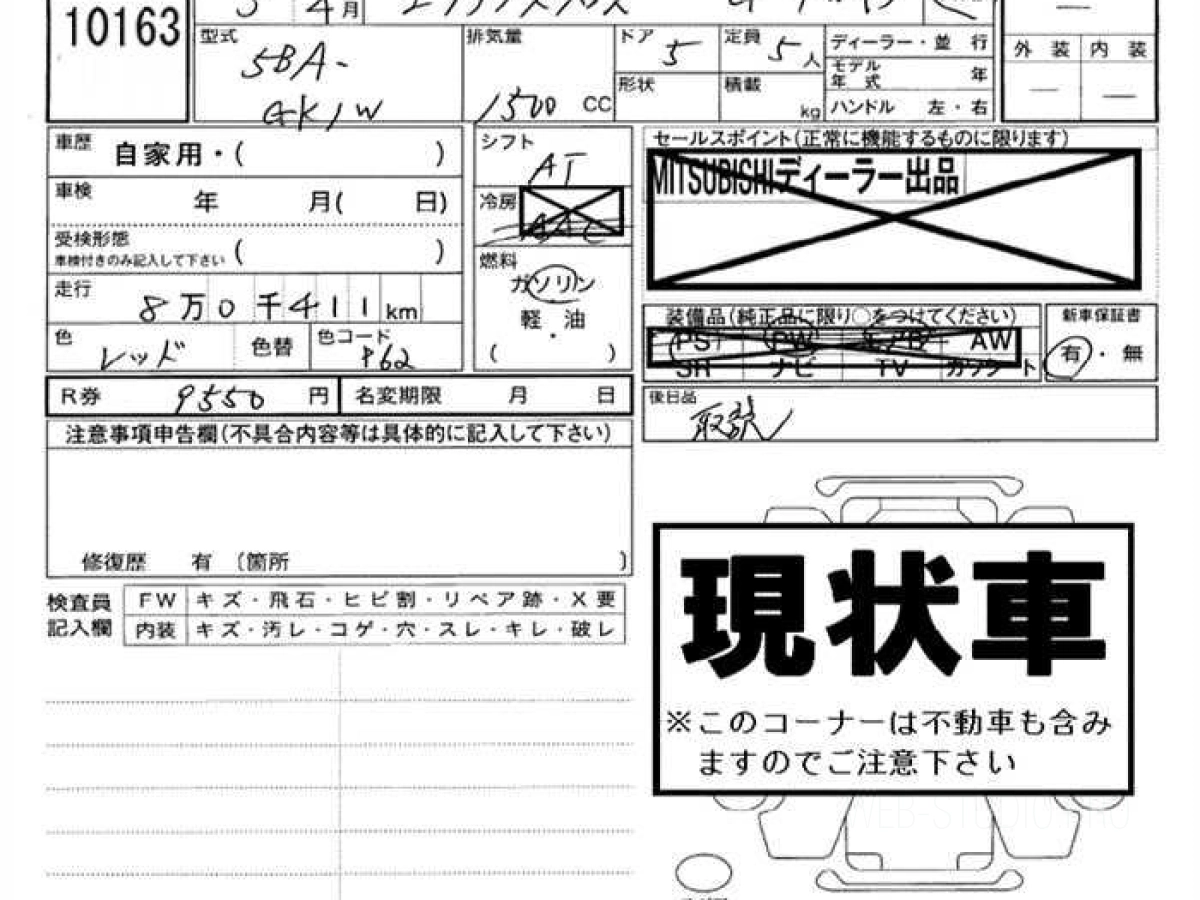 10163
3 4月 エクリプスクロス
型式 5BA-
GK1W
排気量 1500 CC
ドア 5 定員 5人
形状 積載 kg
ディーラー・並 行
モデル年式 年
ハンドル 左・右
外 装 内 装
車歴 自家用・( )
車検 年 月( 日)
受検形態 ( )
車検付きのみ記入して下さい
走行 8万0千411km
色 レッド 色替 色コード P62
シフト AT
冷房 AAC
燃料 ガソリン
軽・油
( )
セールスポイント(正常に機能するものに限ります)
MITSUBISHIディーラー出品
装備品(純正品に限り○をつけてください)
PS PW エアB AW
SR ナビ TV カワシート
新車保証書
有・無
R券 9550 円 名変期限 月 日
後日品
取説
注意事項申告欄(不具合内容等は具体的に記入して下さい)
修復歴 有 〔箇所 〕
検査員記入欄
FW キズ・飛石・ヒビ割・リペア跡・X要
内装 キズ・汚レ・コゲ・穴・スレ・キレ・破レ
現状車
※このコーナーは不動車も含み
ますのでご注意下さい
WEB-STUDIO.PRO